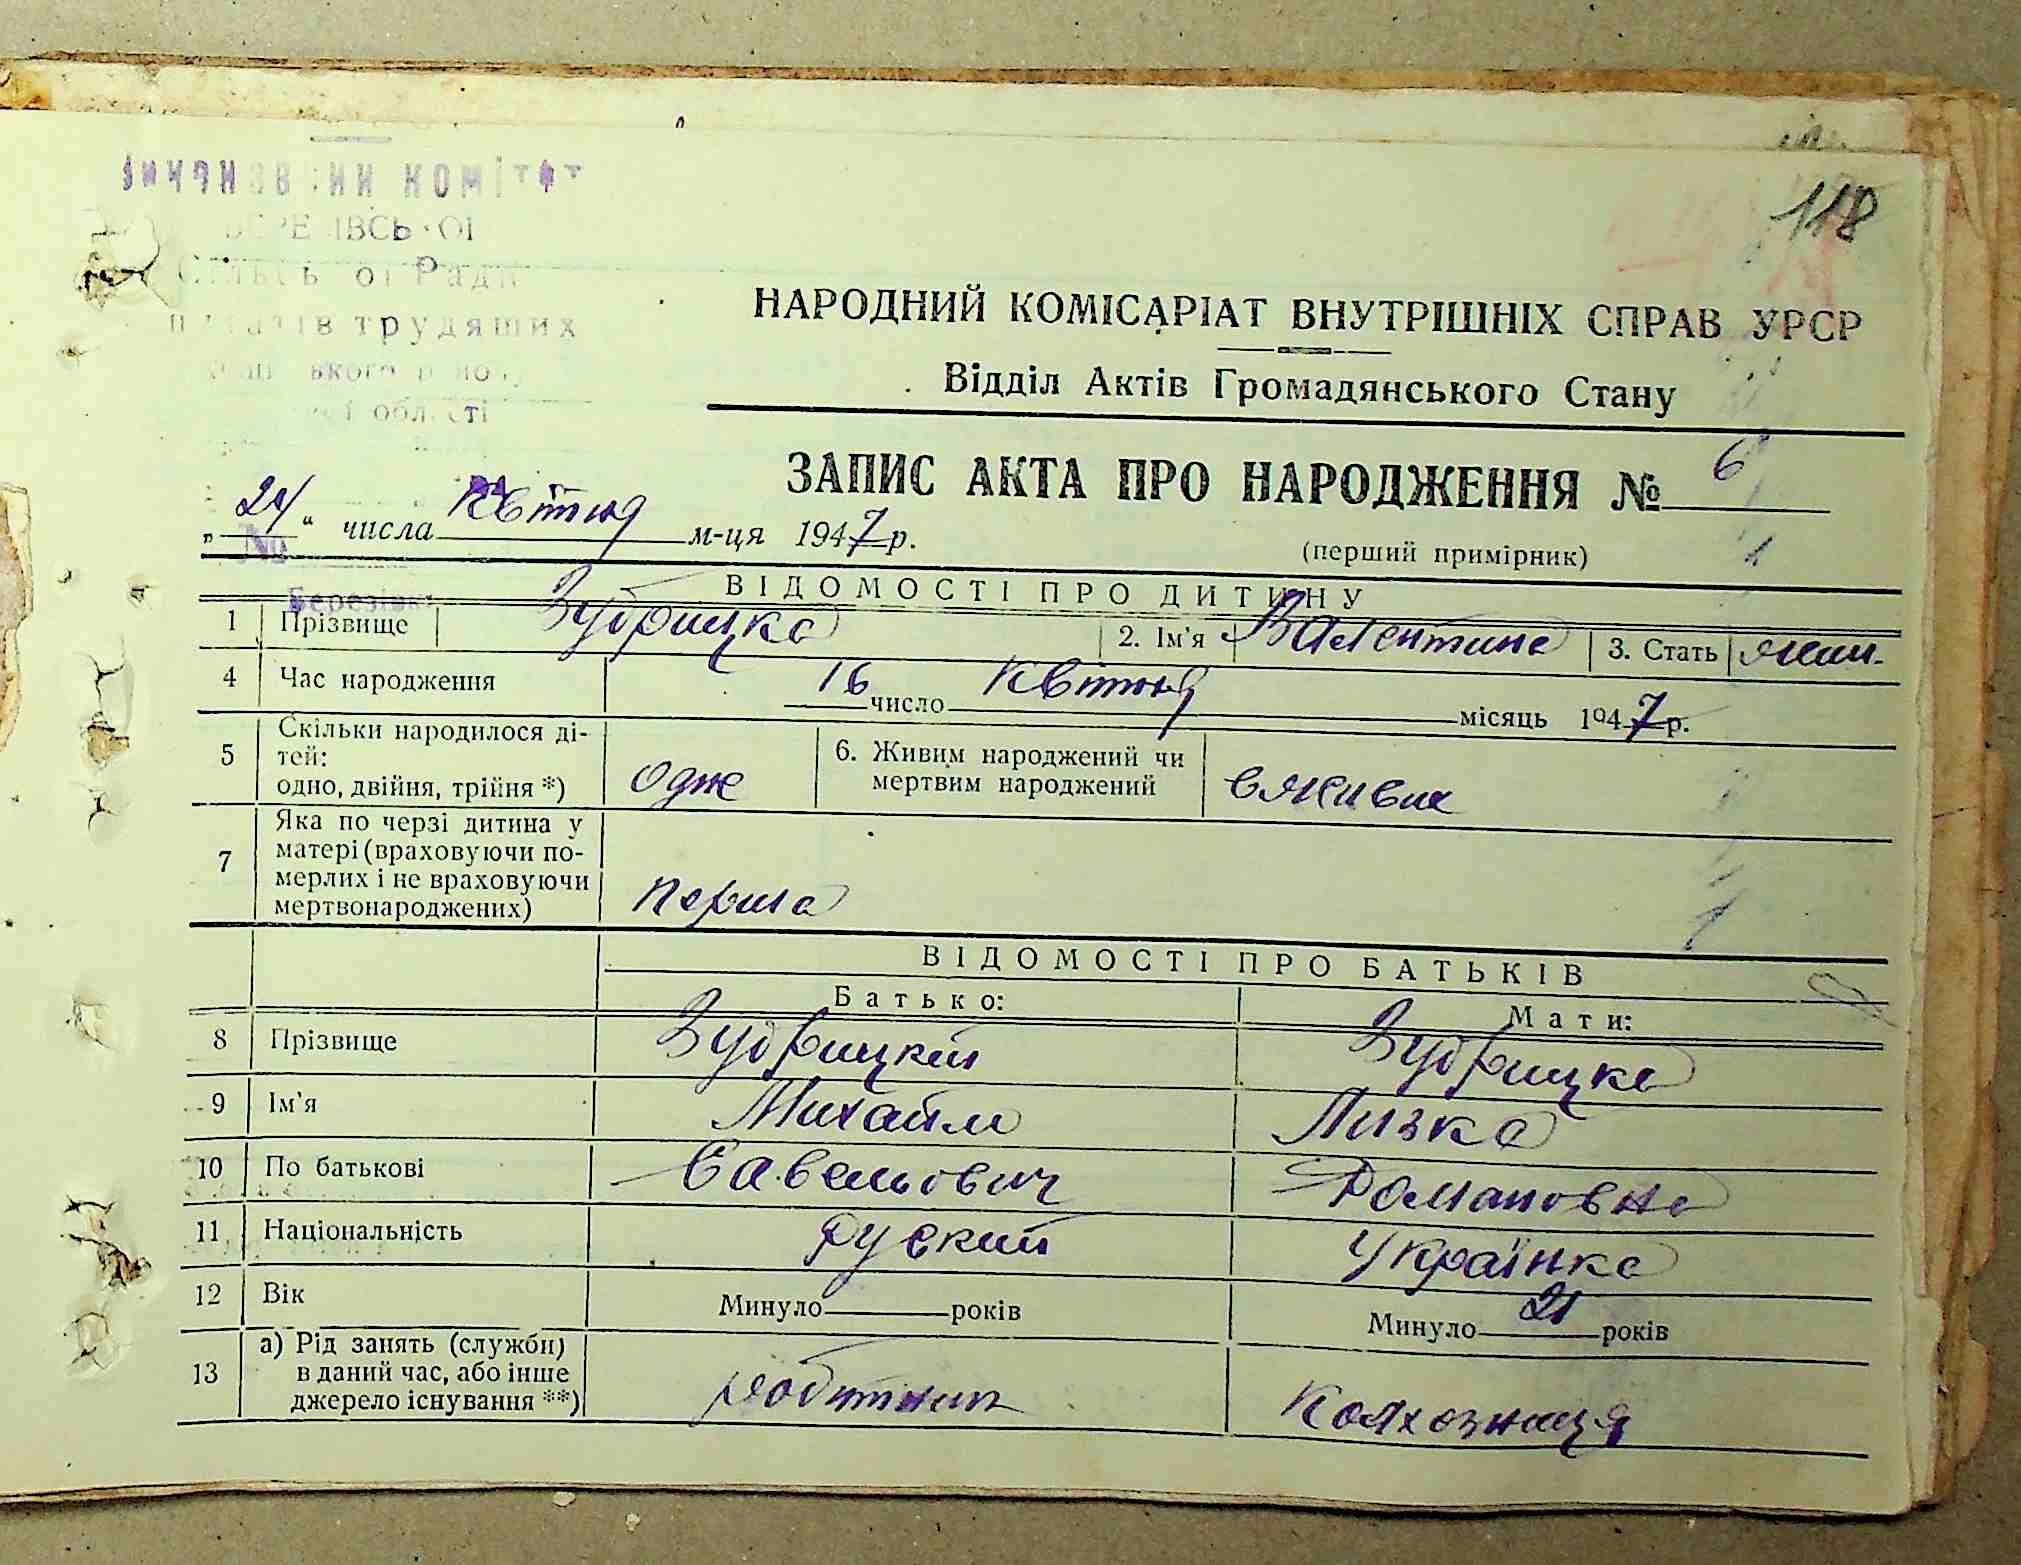 комітет
Ради
трудящих
області
118
НАРОДНИЙ КОМІСАРІАТ ВНУТРІШНІХ СПРАВ УРСР
Відділ Актів Громадянського Стану
ЗАПИС АКТА ПРО НАРОДЖЕННЯ № 6
„24“ числа Квітня м-ця 1947 р.
(перший примірник)
№
ВІДОМОСТІ ПРО ДИТИНУ
1 Прізвище Зубрицка 2. Ім'я Валентина 3. Стать жин.
4 Час народження 16 число Квітня місяць 1947 р.
5 Скільки народилося ді-
тей:
одно, двійня, трійня *) одне
6. Живим народжений чи
мертвим народжений вживих
7 Яка по черзі дитина у
матері (враховуючи по-
мерлих і не враховуючи
мертвонароджених) перша
ВІДОМОСТІ ПРО БАТЬКІВ
Батько: Мати:
8 Прізвище Зубрицкий Зубрицка
9 Ім'я Михайло Лизка
10 По батькові Савельович Романовна
11 Національність руский Українка
12 Вік Минуло років Минуло 21 років
13 а) Рід занять (служби)
в даний час, або інше
джерело існування **) робітник Колхозниця